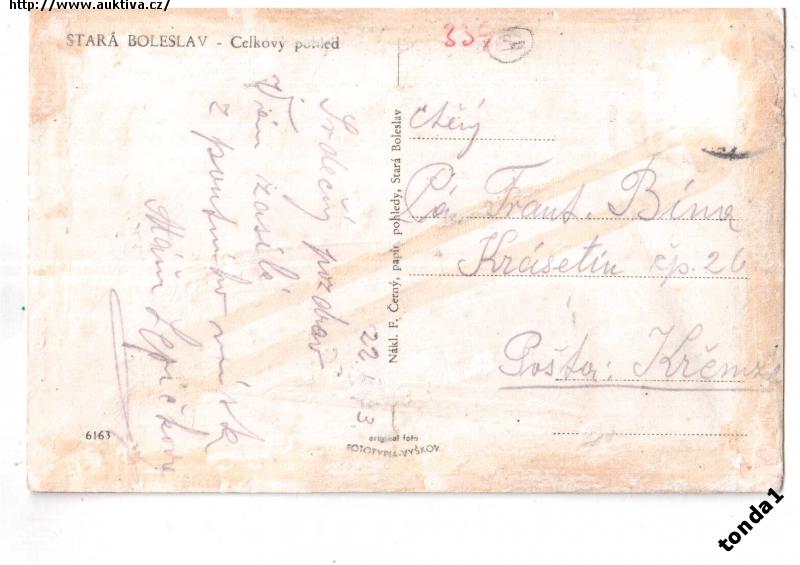 http://www.auktiva.cz/
STARÁ BOLESLAV - Celkový pohled
339
Srdečný pozdrav
Vám zasílá
z poutního místa
22
Nákl. F. Černý, papír. pohledy, Stará Boleslav
Ctěný
Pán Frant. Bína
Krásetín čp. 26
Pošta: Křemže
6163
original foto
FOTOTYPIA-VYŠKOV
tonda1